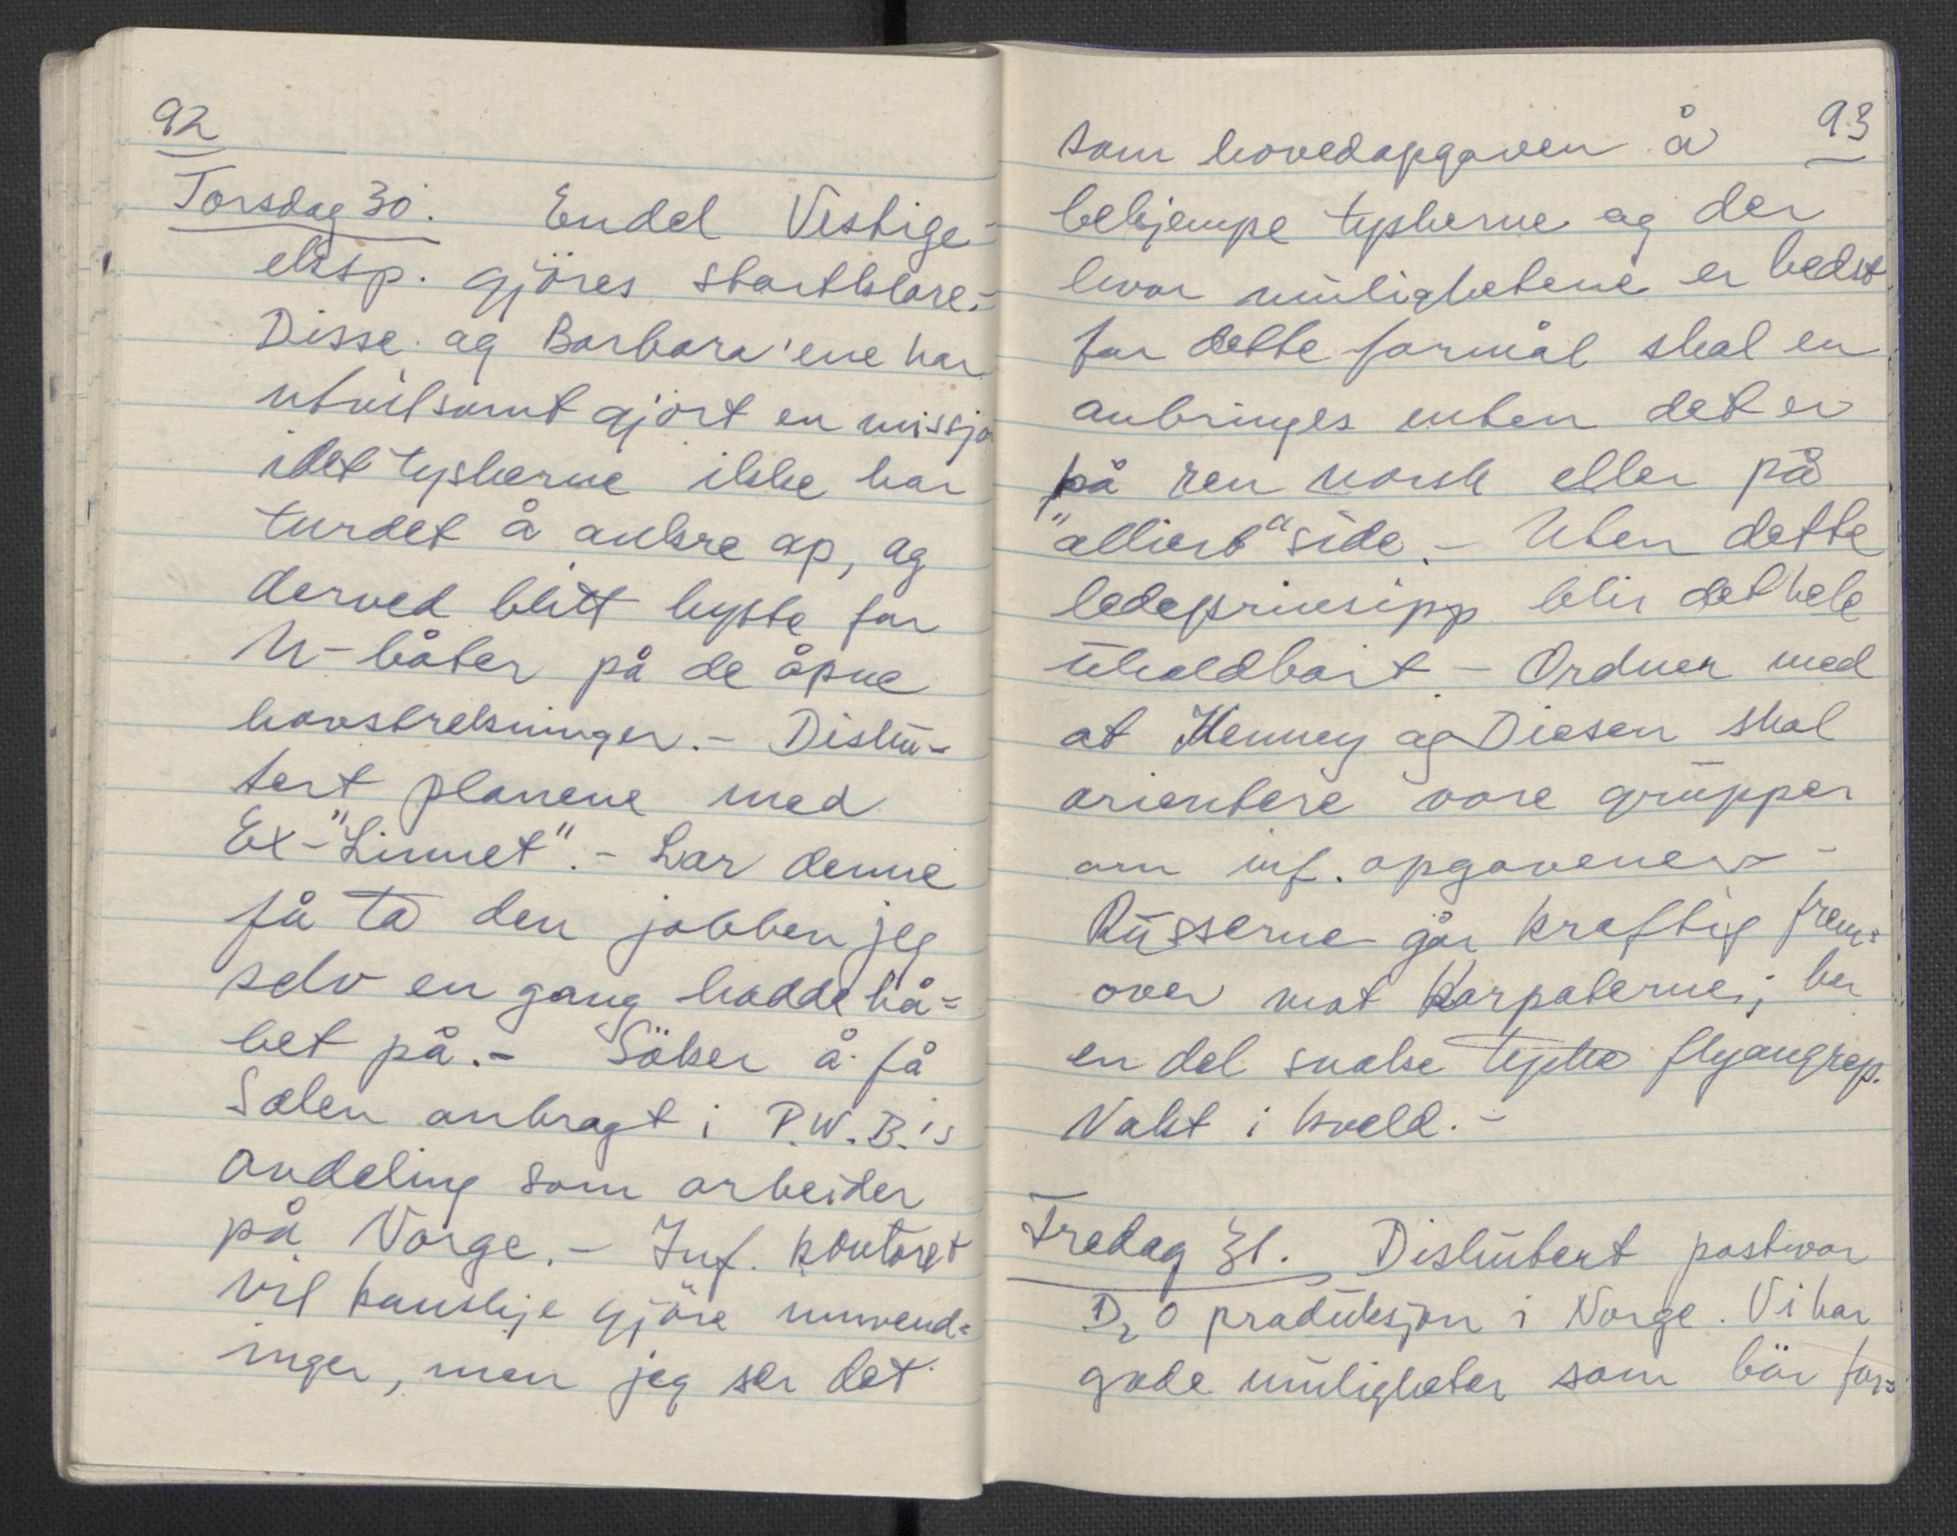 92
Torsdag 30. Endel Vestige-
eksp. gjöres startklare.-
Disse og Barbara'ene har
utvilsomt gjort en missjo
idet tyskerne ikke har
turdet å ankre op, og
derved blitt bytte for
U-båter på de åpne
havstrekninger.- Disku-
tert planene med
Ex-"Linnet".- Lar denne
få ta den jobben jeg
selv en gang hadde hå=
bet på.- Söker å få
Sælen anbragt i P.W.B.'s
avdeling som arbeider
på Norge.- Inf. kontoret
vil kanskje gjöre innvend=
inger, men jeg ser det
93
som hovedopgaven å
bekjempe tyskerne og der
hvor mulighetene er bedst
for dette formål skal en
anbringes enten det er
på ren norsk eller på
"alliert" side.- Uten dette
ledeprinsipp blir det hele
uholdbart - Ordner med
at Kenney og Diesen skal
orientere våre grupper
om inf. opgavene -
Russerne går kraftig frem=
over mot Karpaterne; her
en del svake tyske flyangrep.
Vakt i kveld.-
Fredag 31. Diskutert postwar
D2O produksjon i Norge. Vi har
gode muligheter som bör for=